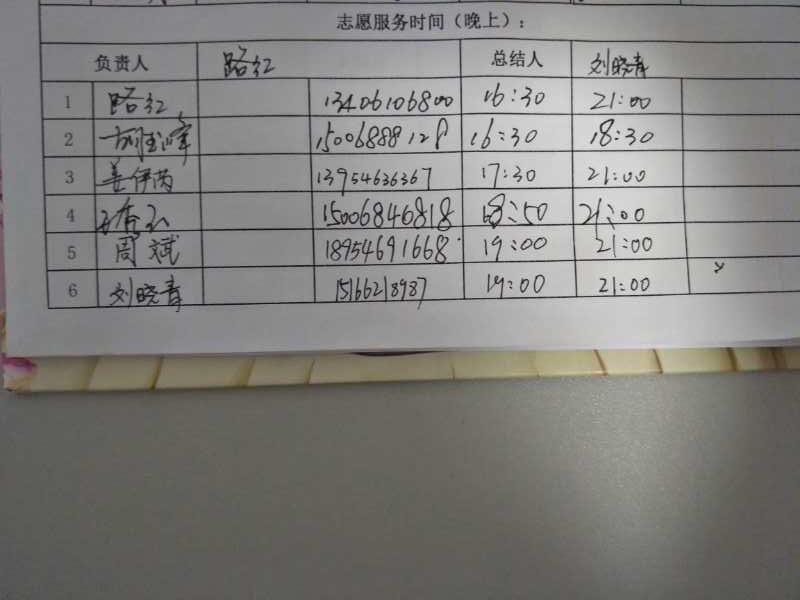 志愿服务时间（晚上）：
负责人 路红 总结人 刘晓青
1 路红 13406106800 16:30 21:00
2 15006888128 16:30 18:30
3 姜伊芮 13954636367 17:30 21:00
4 15006846818 18:50 21:00
5 周斌 18954691668 19:00 21:00
6 刘晓青 15166218987 19:00 21:00